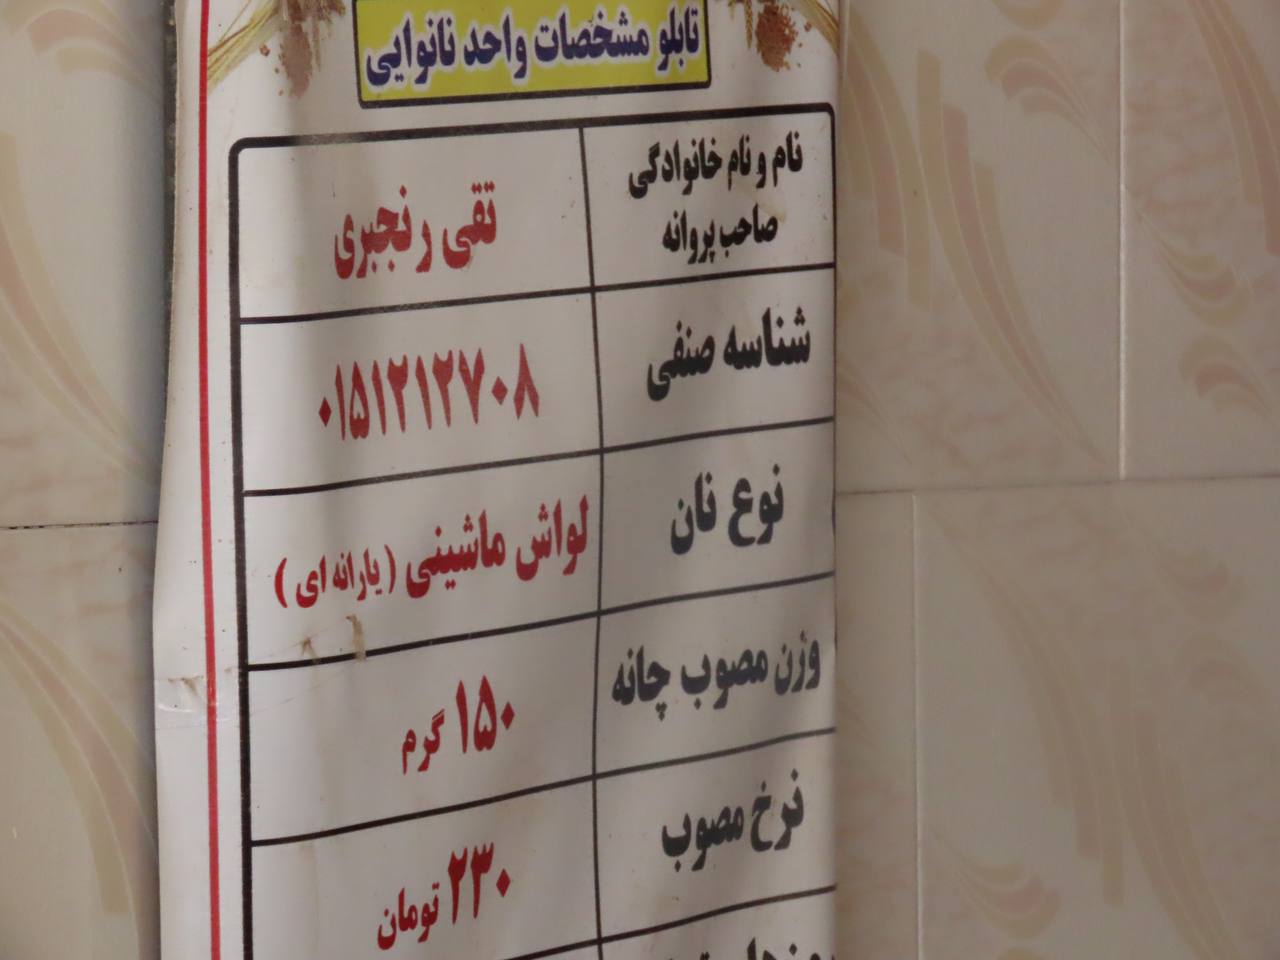 تابلو مشخصات واحد نانوایی
نام و نام خانوادگی
صاحب پروانه
تقی رنجبری
شناسه صنفی
۰۱۵۱۲۱۲۷۰۸
نوع نان
لواش ماشینی (یارانه ای)
وزن مصوب چانه
۱۵۰ گرم
نرخ مصوب
۲۳۰ تومان